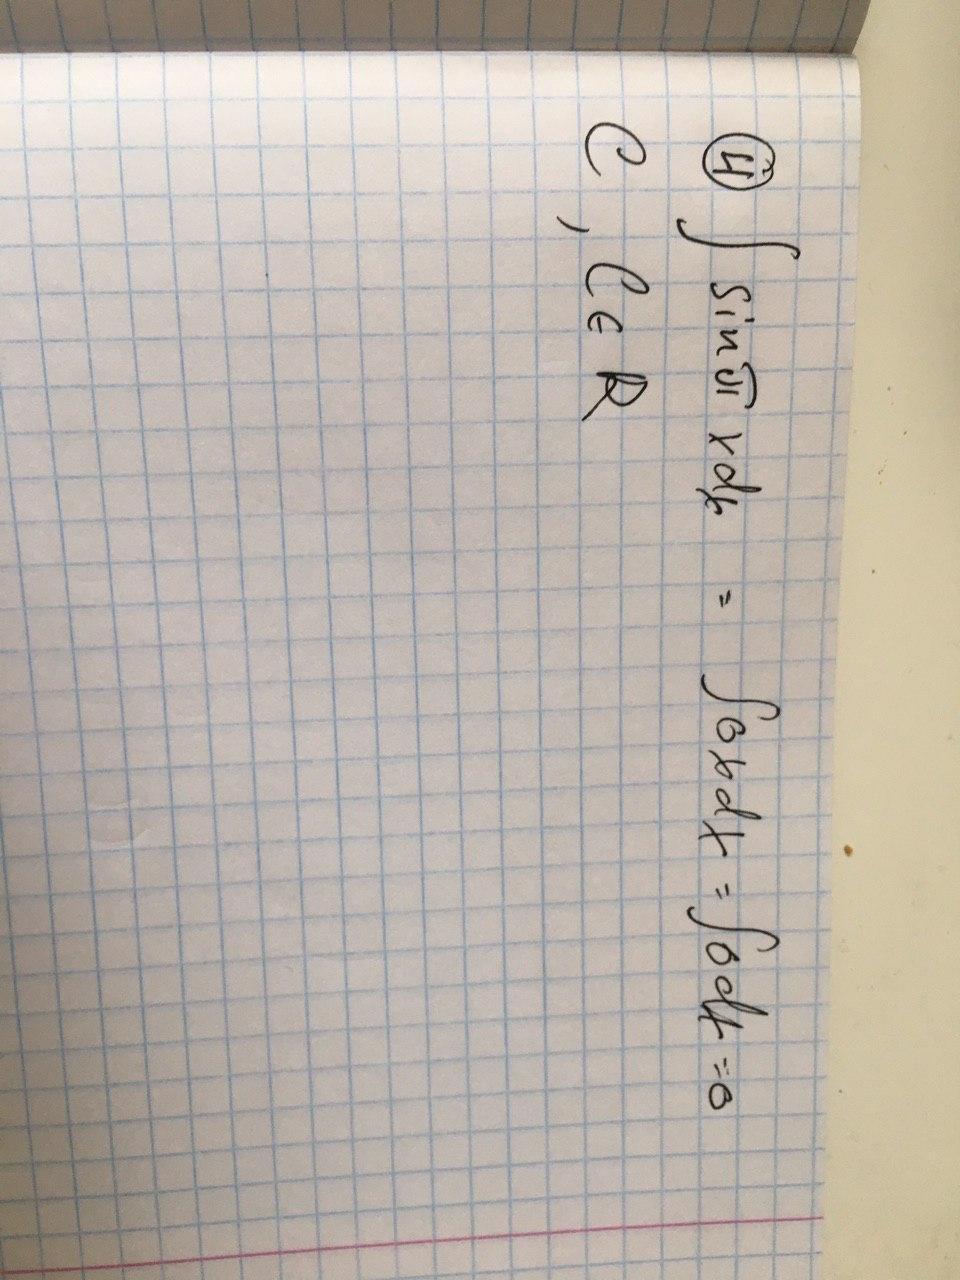 й ∫ sin π x dx = ∫ 0 x dx = ∫ 0 dx = 0
C, C ∈ R